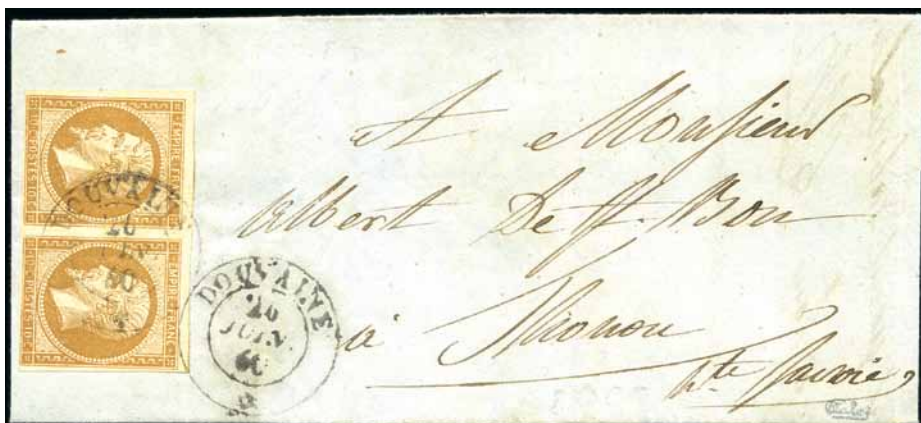 EMPIRE FRANC
POSTES
DOUVAINE
EMPIRE FRANC
POSTES
DOUVAINE
26
JUIN
60
A Monsieur
Albert De St. Bon
à Thonon
hte Savoie